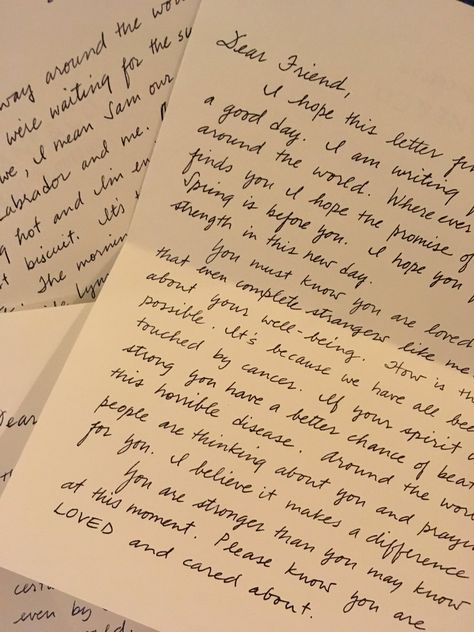 way around the wo
were waiting for the su
we, I mean Sam our
Labrador and me.
g hot and I'm en
t biscuit. It's
The mornin
Dear
even by
Dear Friend,
I hope this letter fin
a good day. I am writing
around the world. Where ever
finds you I hope the promise of
Spring is before you. I hope you
strength in this new day.
You must know you are loved
that even complete strangers like me
about your well-being. How is th
possible. It's because we have all bee
touched by cancer. If your spirit
strong you have a better chance of beat
this horrible disease. Around the wor
people are thinking about you and prayin
for you. I believe it makes a difference
You are stronger than you may know
at this moment. Please know you are
LOVED and cared about.